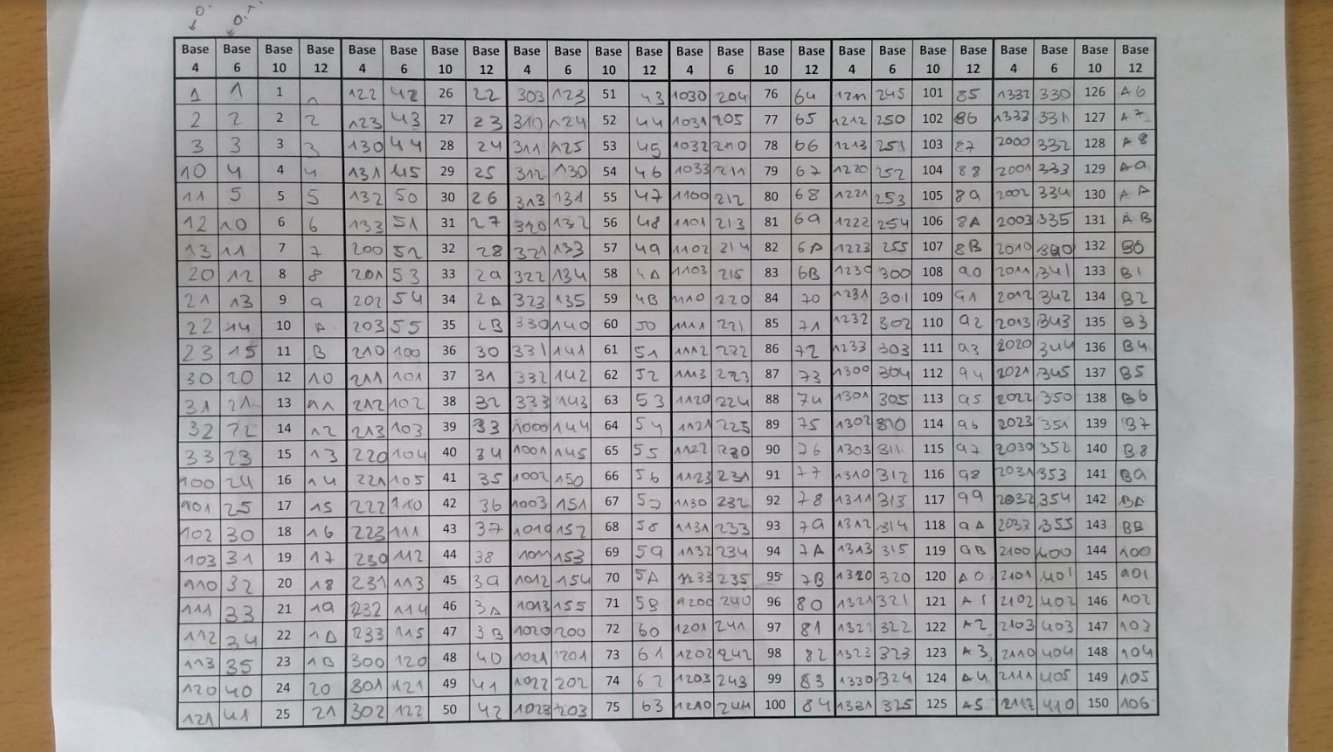 0.
0.1.
Base Base Base Base Base Base Base Base Base Base Base Base Base Base Base Base Base Base Base Base Base Base Base Base
4 6 10 12 4 6 10 12 4 6 10 12 4 6 10 12 4 6 10 12 4 6 10 12
1 1 1 1 122 42 26 22 303 123 51 43 1030 204 76 64 1211 245 101 85 1332 330 126 A6
2 2 2 2 123 43 27 23 310 124 52 44 1031 205 77 65 1212 250 102 86 1333 331 127 A7
3 3 3 3 130 44 28 24 311 125 53 45 1032 210 78 66 1213 251 103 87 2000 332 128 A8
10 4 4 4 131 45 29 25 312 130 54 46 1033 211 79 67 1220 252 104 88 2001 333 129 A9
11 5 5 5 132 50 30 26 313 131 55 47 1100 212 80 68 1221 253 105 89 2002 334 130 AA
12 10 6 6 133 51 31 27 320 132 56 48 1101 213 81 69 1222 254 106 8A 2003 335 131 AB
13 11 7 7 200 52 32 28 321 133 57 49 1102 214 82 6A 1223 255 107 8B 2010 340 132 B0
20 12 8 8 201 53 33 29 322 134 58 4A 1103 215 83 6B 1230 300 108 90 2011 341 133 B1
21 13 9 9 202 54 34 2A 323 135 59 4B 1110 220 84 70 1231 301 109 91 2012 342 134 B2
22 14 10 A 203 55 35 2B 330 140 60 50 1111 221 85 71 1232 302 110 92 2013 343 135 B3
23 15 11 B 210 100 36 30 331 141 61 51 1112 222 86 72 1233 303 111 93 2020 344 136 B4
30 20 12 10 211 101 37 31 332 142 62 52 1113 223 87 73 1300 304 112 94 2021 345 137 B5
31 21 13 11 212 102 38 32 333 143 63 53 1120 224 88 74 1301 305 113 95 2022 350 138 B6
32 22 14 12 213 103 39 33 1000 144 64 54 1121 225 89 75 1302 310 114 96 2023 351 139 B7
33 23 15 13 220 104 40 34 1001 145 65 55 1122 230 90 76 1303 311 115 97 2030 352 140 B8
100 24 16 14 221 105 41 35 1002 150 66 56 1123 231 91 77 1310 312 116 98 2031 353 141 B9
101 25 17 15 222 110 42 36 1003 151 67 57 1130 232 92 78 1311 313 117 99 2032 354 142 BA
102 30 18 16 223 111 43 37 1010 152 68 58 1131 233 93 79 1312 314 118 9A 2033 355 143 BB
103 31 19 17 230 112 44 38 1011 153 69 59 1132 234 94 7A 1313 315 119 9B 2100 400 144 100
110 32 20 18 231 113 45 39 1012 154 70 5A 1133 235 95 7B 1320 320 120 A0 2101 401 145 101
111 33 21 19 232 114 46 3A 1013 155 71 5B 1200 240 96 80 1321 321 121 A1 2102 402 146 102
112 34 22 1A 233 115 47 3B 1020 200 72 60 1201 241 97 81 1322 322 122 A2 2103 403 147 103
113 35 23 1B 300 120 48 40 1021 201 73 61 1202 242 98 82 1323 323 123 A3 2110 404 148 104
120 40 24 20 301 121 49 41 1022 202 74 62 1203 243 99 83 1330 324 124 A4 2111 405 149 105
121 41 25 21 302 122 50 42 1023 203 75 63 1210 244 100 84 1331 325 125 A5 2112 410 150 106